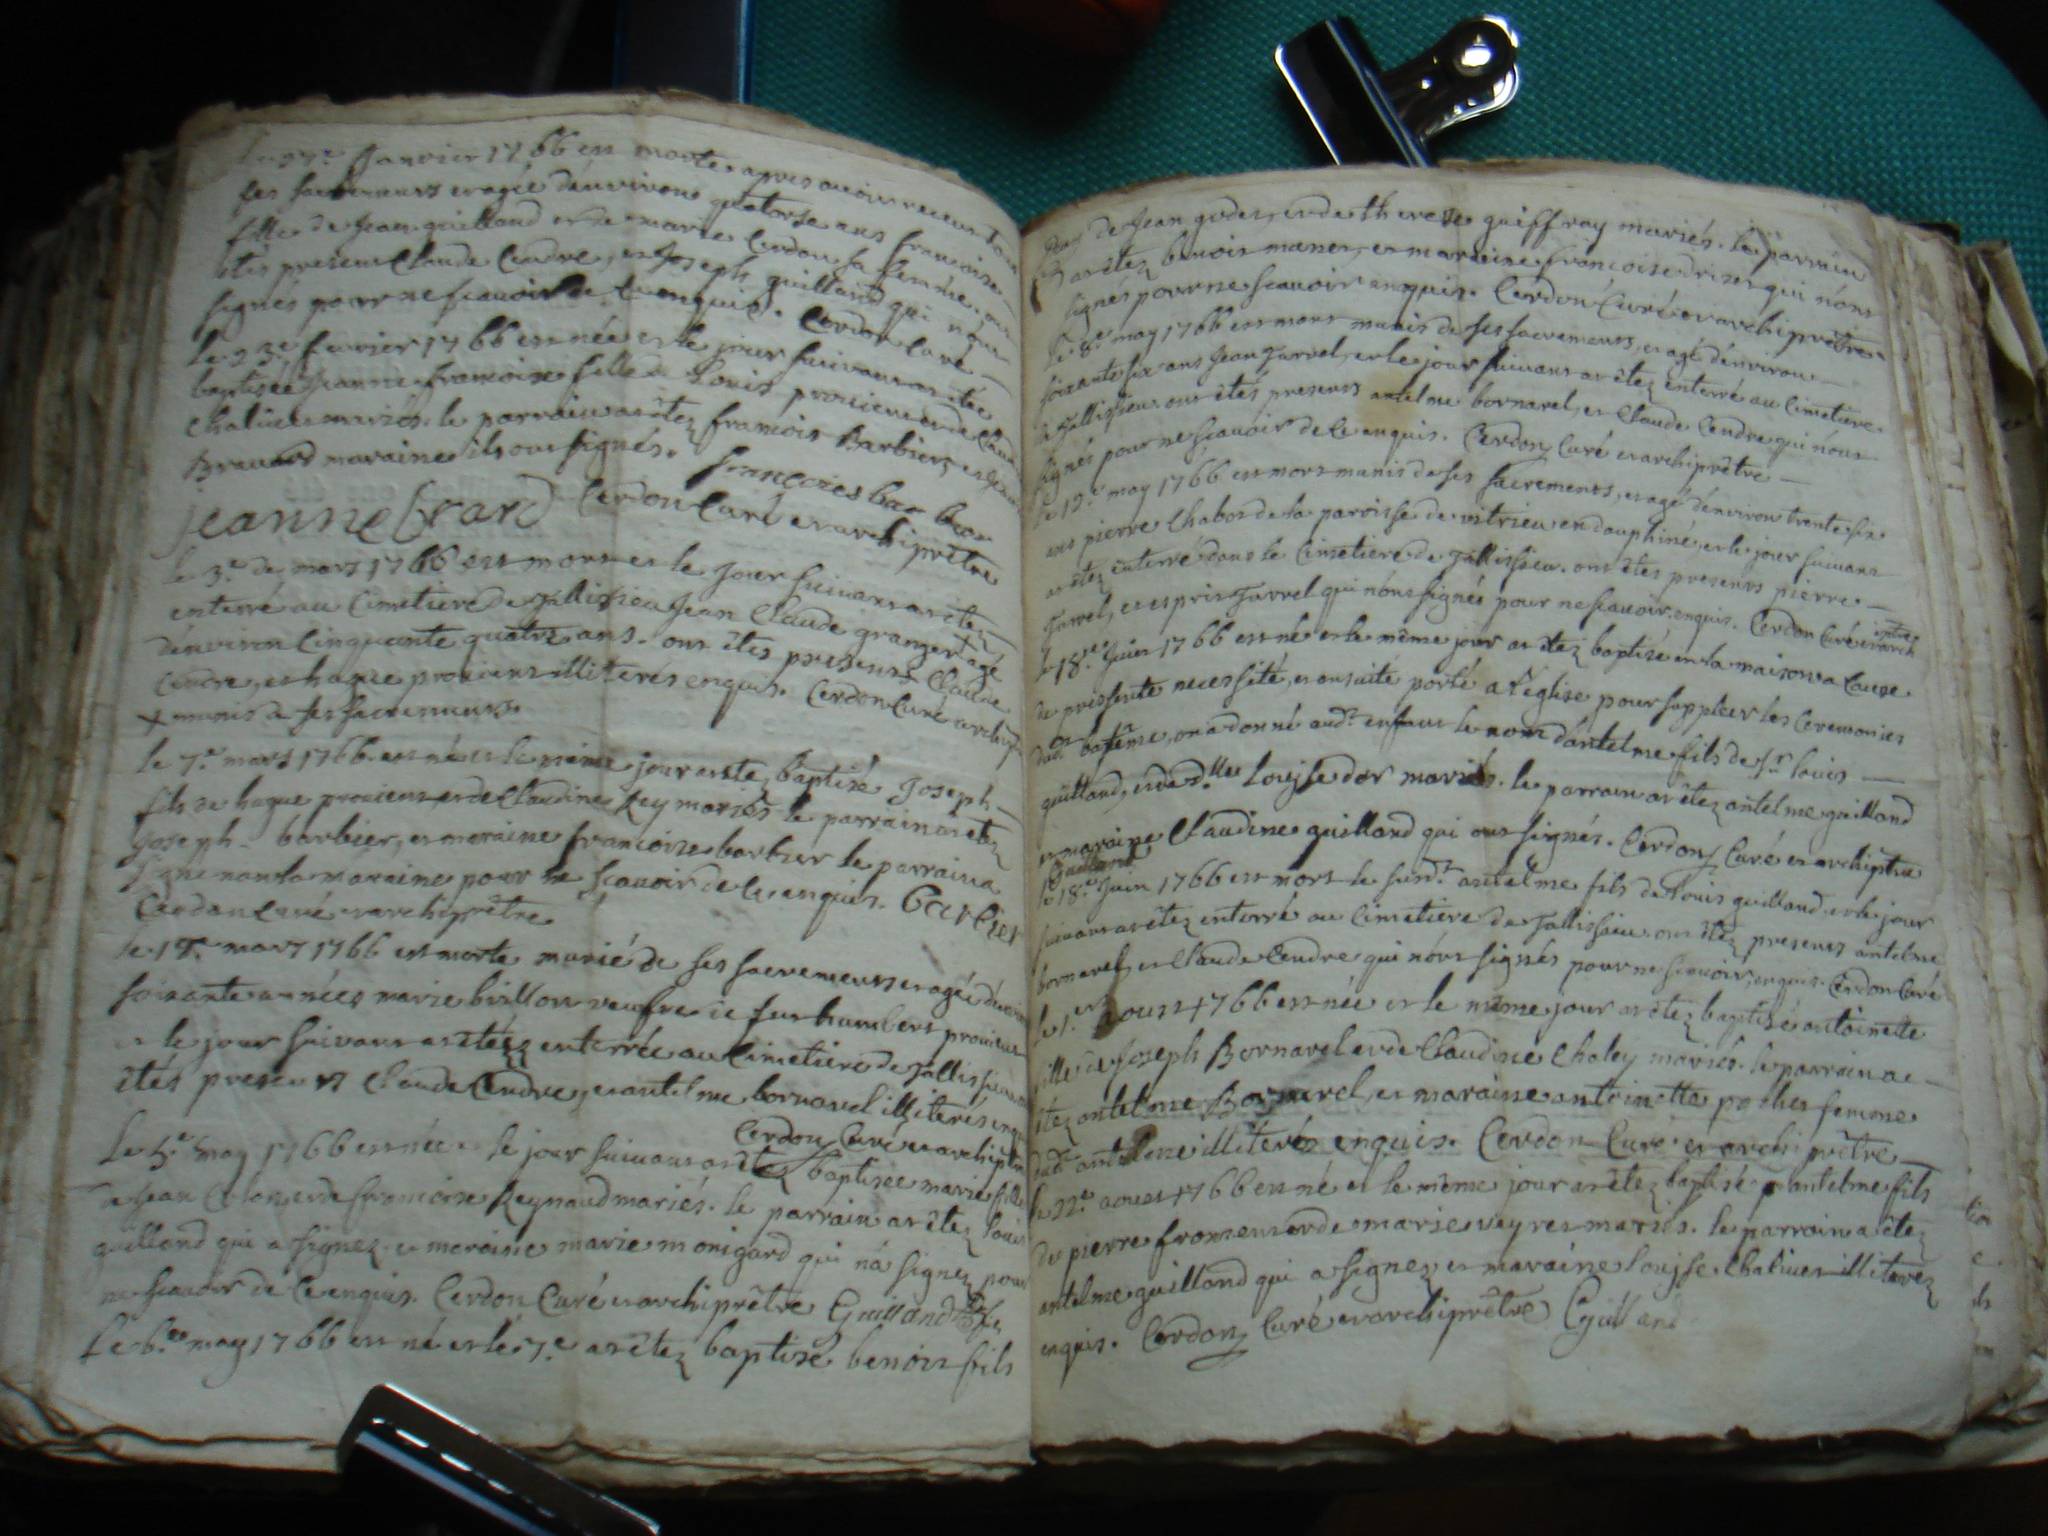 Le 27.e Janvier 1766 est morte apres avoir recu tous
ses sacremens et agée d'environ quatorse ans francoise
fille de Jean guilland et de marie Cerdon sa femme. ont
étés presens Claude Cendre, et Joseph guilland qui n'ont
signés pour ne scavoir de ce enquis. Cerdon Curé
Le 23.e fevrier 1766 est née et le jour suivant a etée
baptisée Jeanne francoise fille de Louis proviens et de Claud
Chaliues mariés. le parrain a etéz francois Barbier et Jeann
Bravard maraine ils ont signés.
francoes bar bier
jeanne brard Cerdon Curé et archiprêtre
le 3.e de mars 1766 est mort et le jour suivant a etez
enterré au Cimetiere de Jallissieu Jean Claude granger + agé
d'environ cinquante quatre ans. ont étés presens Claude
Cendre, et hugue proviens illiterés enquis. Cerdon Curé archip
+ munis de ses sacremens.
le 7.e mars 1766 est né et le même jour a ete baptisé Joseph
fils de hugue proviens et de Claudine Rey mariés le parrain a etez
Joseph barbier, et maraine francoise barbier le parrain a
signé non la maraine pour ne scavoir de ce enquis. barbier
Cerdon Curé et archiprêtre.
le 19.e mars 1766 est morte munié de ses sacremens et agée d'envir
soixante années marie billion veufve de humbert proviens
et le jour suivant a etéz enterrée au Cimetiere de Jallissieu ont
étés presens Claude Cendre, et antelme bornarel illiterés enqui
Cerdon Curé et archiptre
Le 5.e may 1766 est née et le jour suivant a étéz baptisée marie fille
a Jean et de francoise Reynaud mariés. le parrain a étéz louis
guilland qui a signez et maraine marie monigard qui n'a signez pour
ne scavoir de ce enquis. Cerdon Curé et archiprêtre Guilland
Le 6.e may 1766 est né et le 7.e a étéz baptisé benoit fils
de Jean godet, et de therese guiffray mariés. le parrain
a étéz benoit maner, et maraine francoise qui n'ont
signés pour ne scavoir enquis. Cerdon Curé et archiprêtre
le 8.e may 1766 est mort munis de ses sacremens, et agé d'environ
soixante six ans Jean Jarrel, et le jour suivant a étéz enterré au Cimetiere
de Jallissieu. ont étés presens antelme bornarel, et Claude Cendre qui n'ont
signés pour ne scavoir de ce enquis. Cerdon Curé et archiprêtre
le 12.e may 1766 est mort munis de ses sacremens, et agé d'environ trente six
ans pierre Chabot de la paroisse de vitrieu en dauphiné et le jour suivant
a étéz enterré dans le Cimetiere de Jallissieu. ont étés presens pierre
Jarrel, et espris Jarrel qui n'ont signés pour ne scavoir enquis. Cerdon Curé et arch
iptre
le 18.e Juin 1766 est né et le même jour a étéz baptisé en la maison a cause
de pressente necessité, et ensuite porté a l'église pour suppleer les ceremonies
dud. batême, on a donné aud.t enfant le nom d'antelme fils de s.r louis
guilland, et de d.lle louise dor mariés. le parrain a étéz antelme guilland
et maraine Claudine guilland qui ont signés. Cerdon Curé et archiptre
Guilland
le 18.e Juin 1766 est mort le susd.t antelme fils de louis guilland et le jour
suivant a étéz enterré au Cimetiere de Jallissieu. ont étéz presens antelme
bornarel, et Claude Cendre qui n'ont signés pour ne scavoir, enquis. Cerdon Curé
le 1.er aoust 1766 est née et le même jour a étéz baptisé antoinette
fille de Joseph Bornarel et de Claudine Chaley mariés. le parrain a
étéz antelme Bornarel, et maraine antoinette pocher femme
dud.t antelme illiteréz enquis. Cerdon Curé et archiprêtre
le 22.e aoust 1766 est né et le même jour a étéz baptisé antelme fils
de pierre froment et de marie veyret mariés. le parrain a étéz
antelme guilland qui a signez et maraine louise Chaliues illiterez
enquis. Cerdon Curé et archiprêtre Guilland